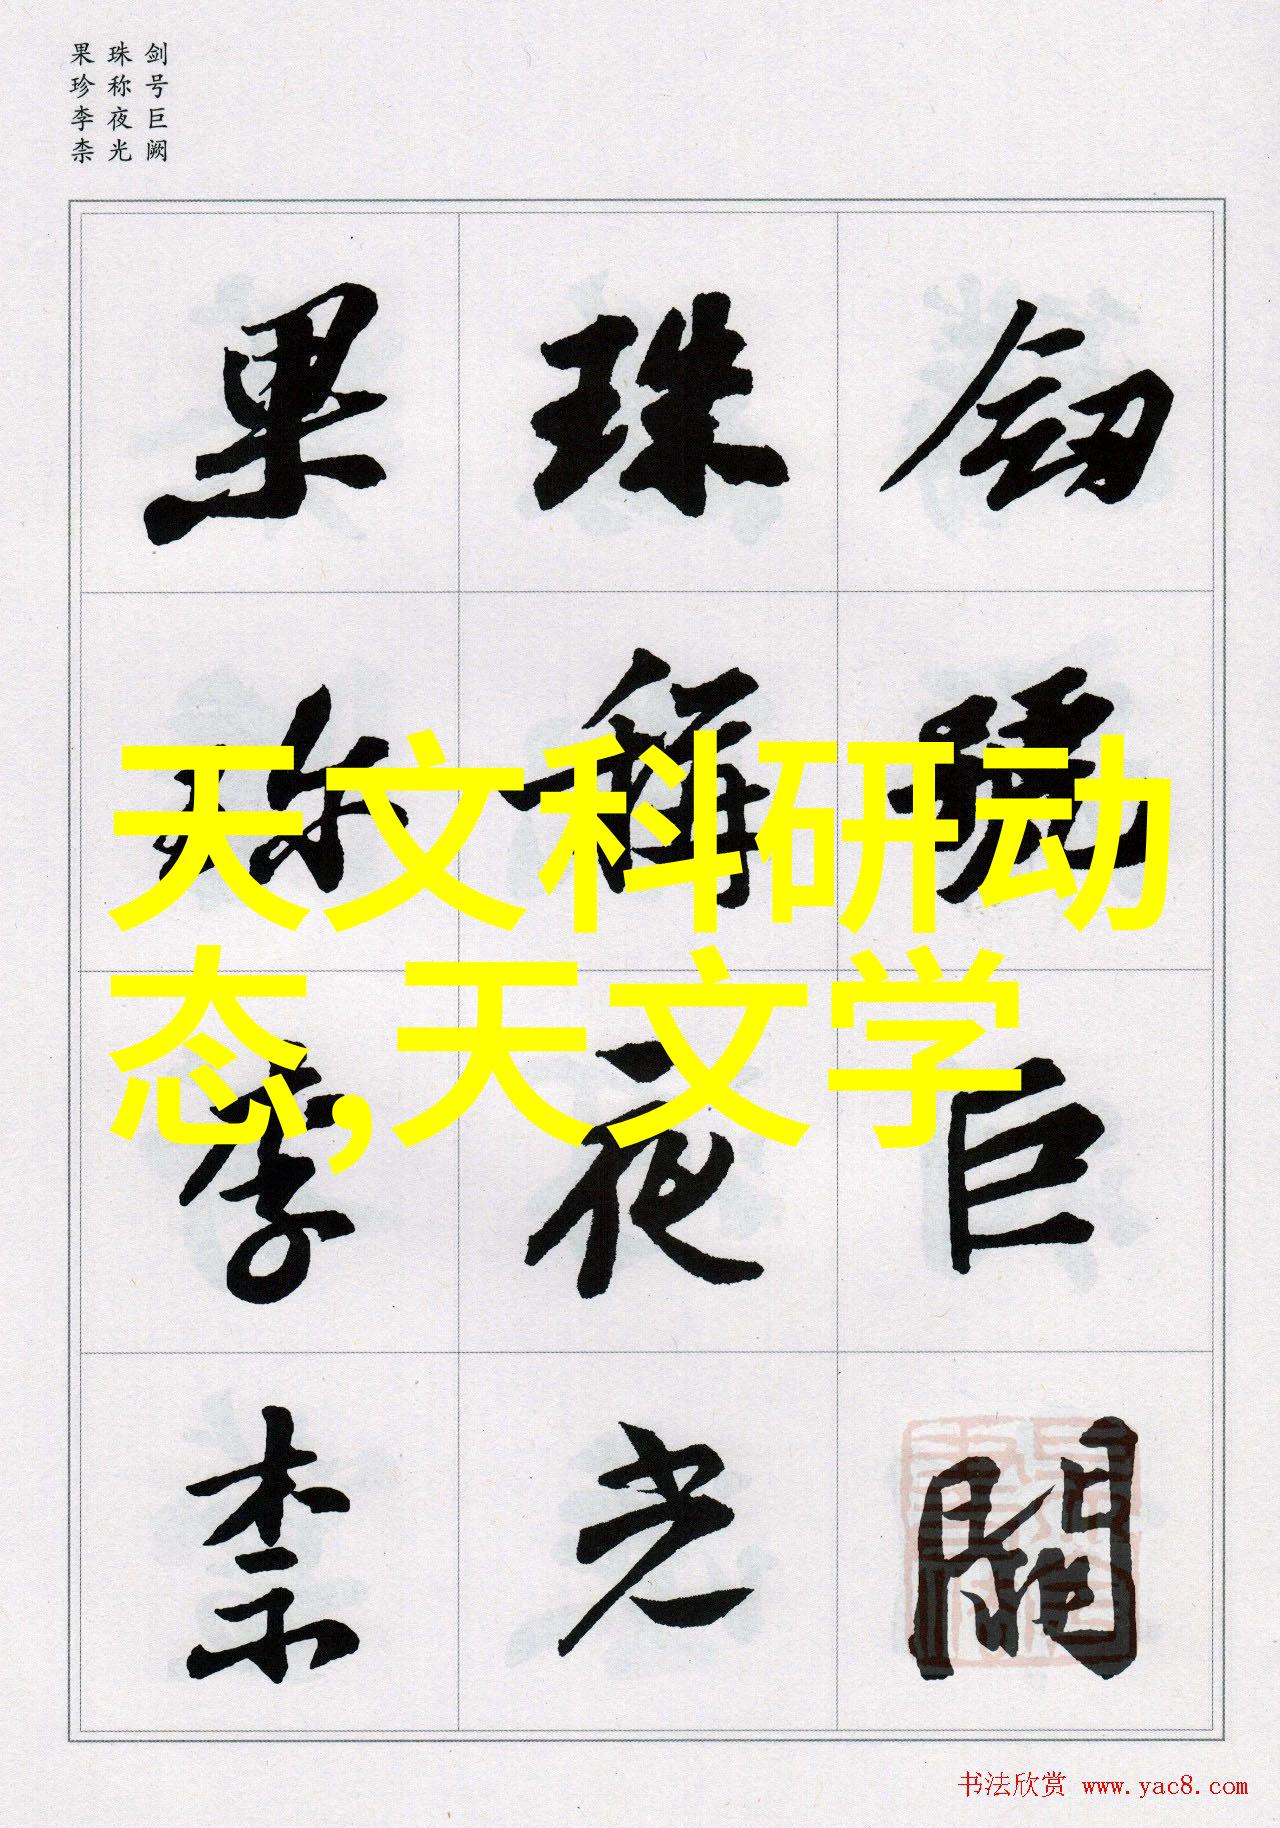 剑号巨阙
珠称夜光
果珍李柰
剑号巨阙
珠称夜光
果珍李柰
天文科研动
态,天文学
书法欣赏 www.yac8.com